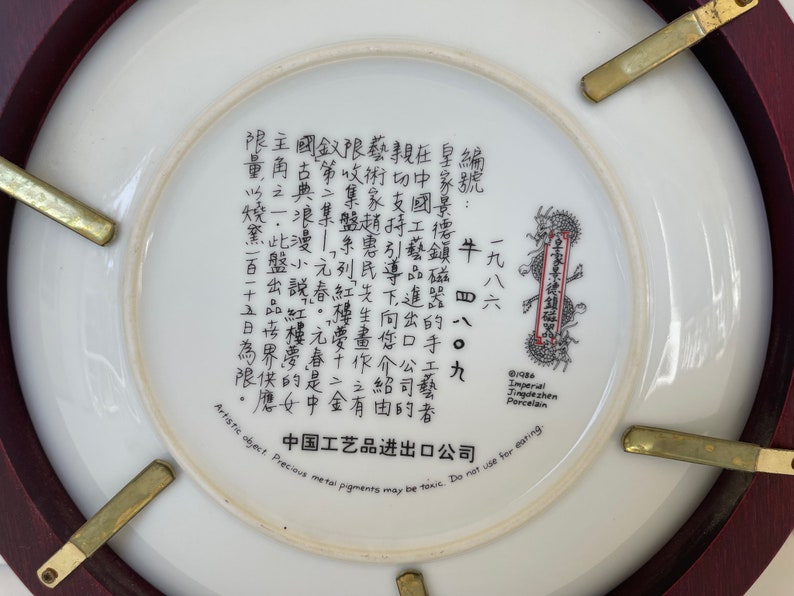 皇家景德鎮磁器
©1986
Imperial
Jingdezhen
Porcelain
一九八六
編號：牛 四八〇九
皇家景德鎮磁器的手工藝者
在中國工藝品進出口公司的
親切支持引導下向您介紹由
藝術家趙惠民先生畫作之有
限收集盤系列「紅樓夢十二金
釵」第二集—「元春」。「元春」是中
國古典浪漫小說「紅樓夢」的女
主角之一．此盤出品世界供應
限量，以燒窯一百一十五日為限。
中国工艺品进出口公司
Artistic object. Precious metal pigments may be toxic. Do not use for eating.